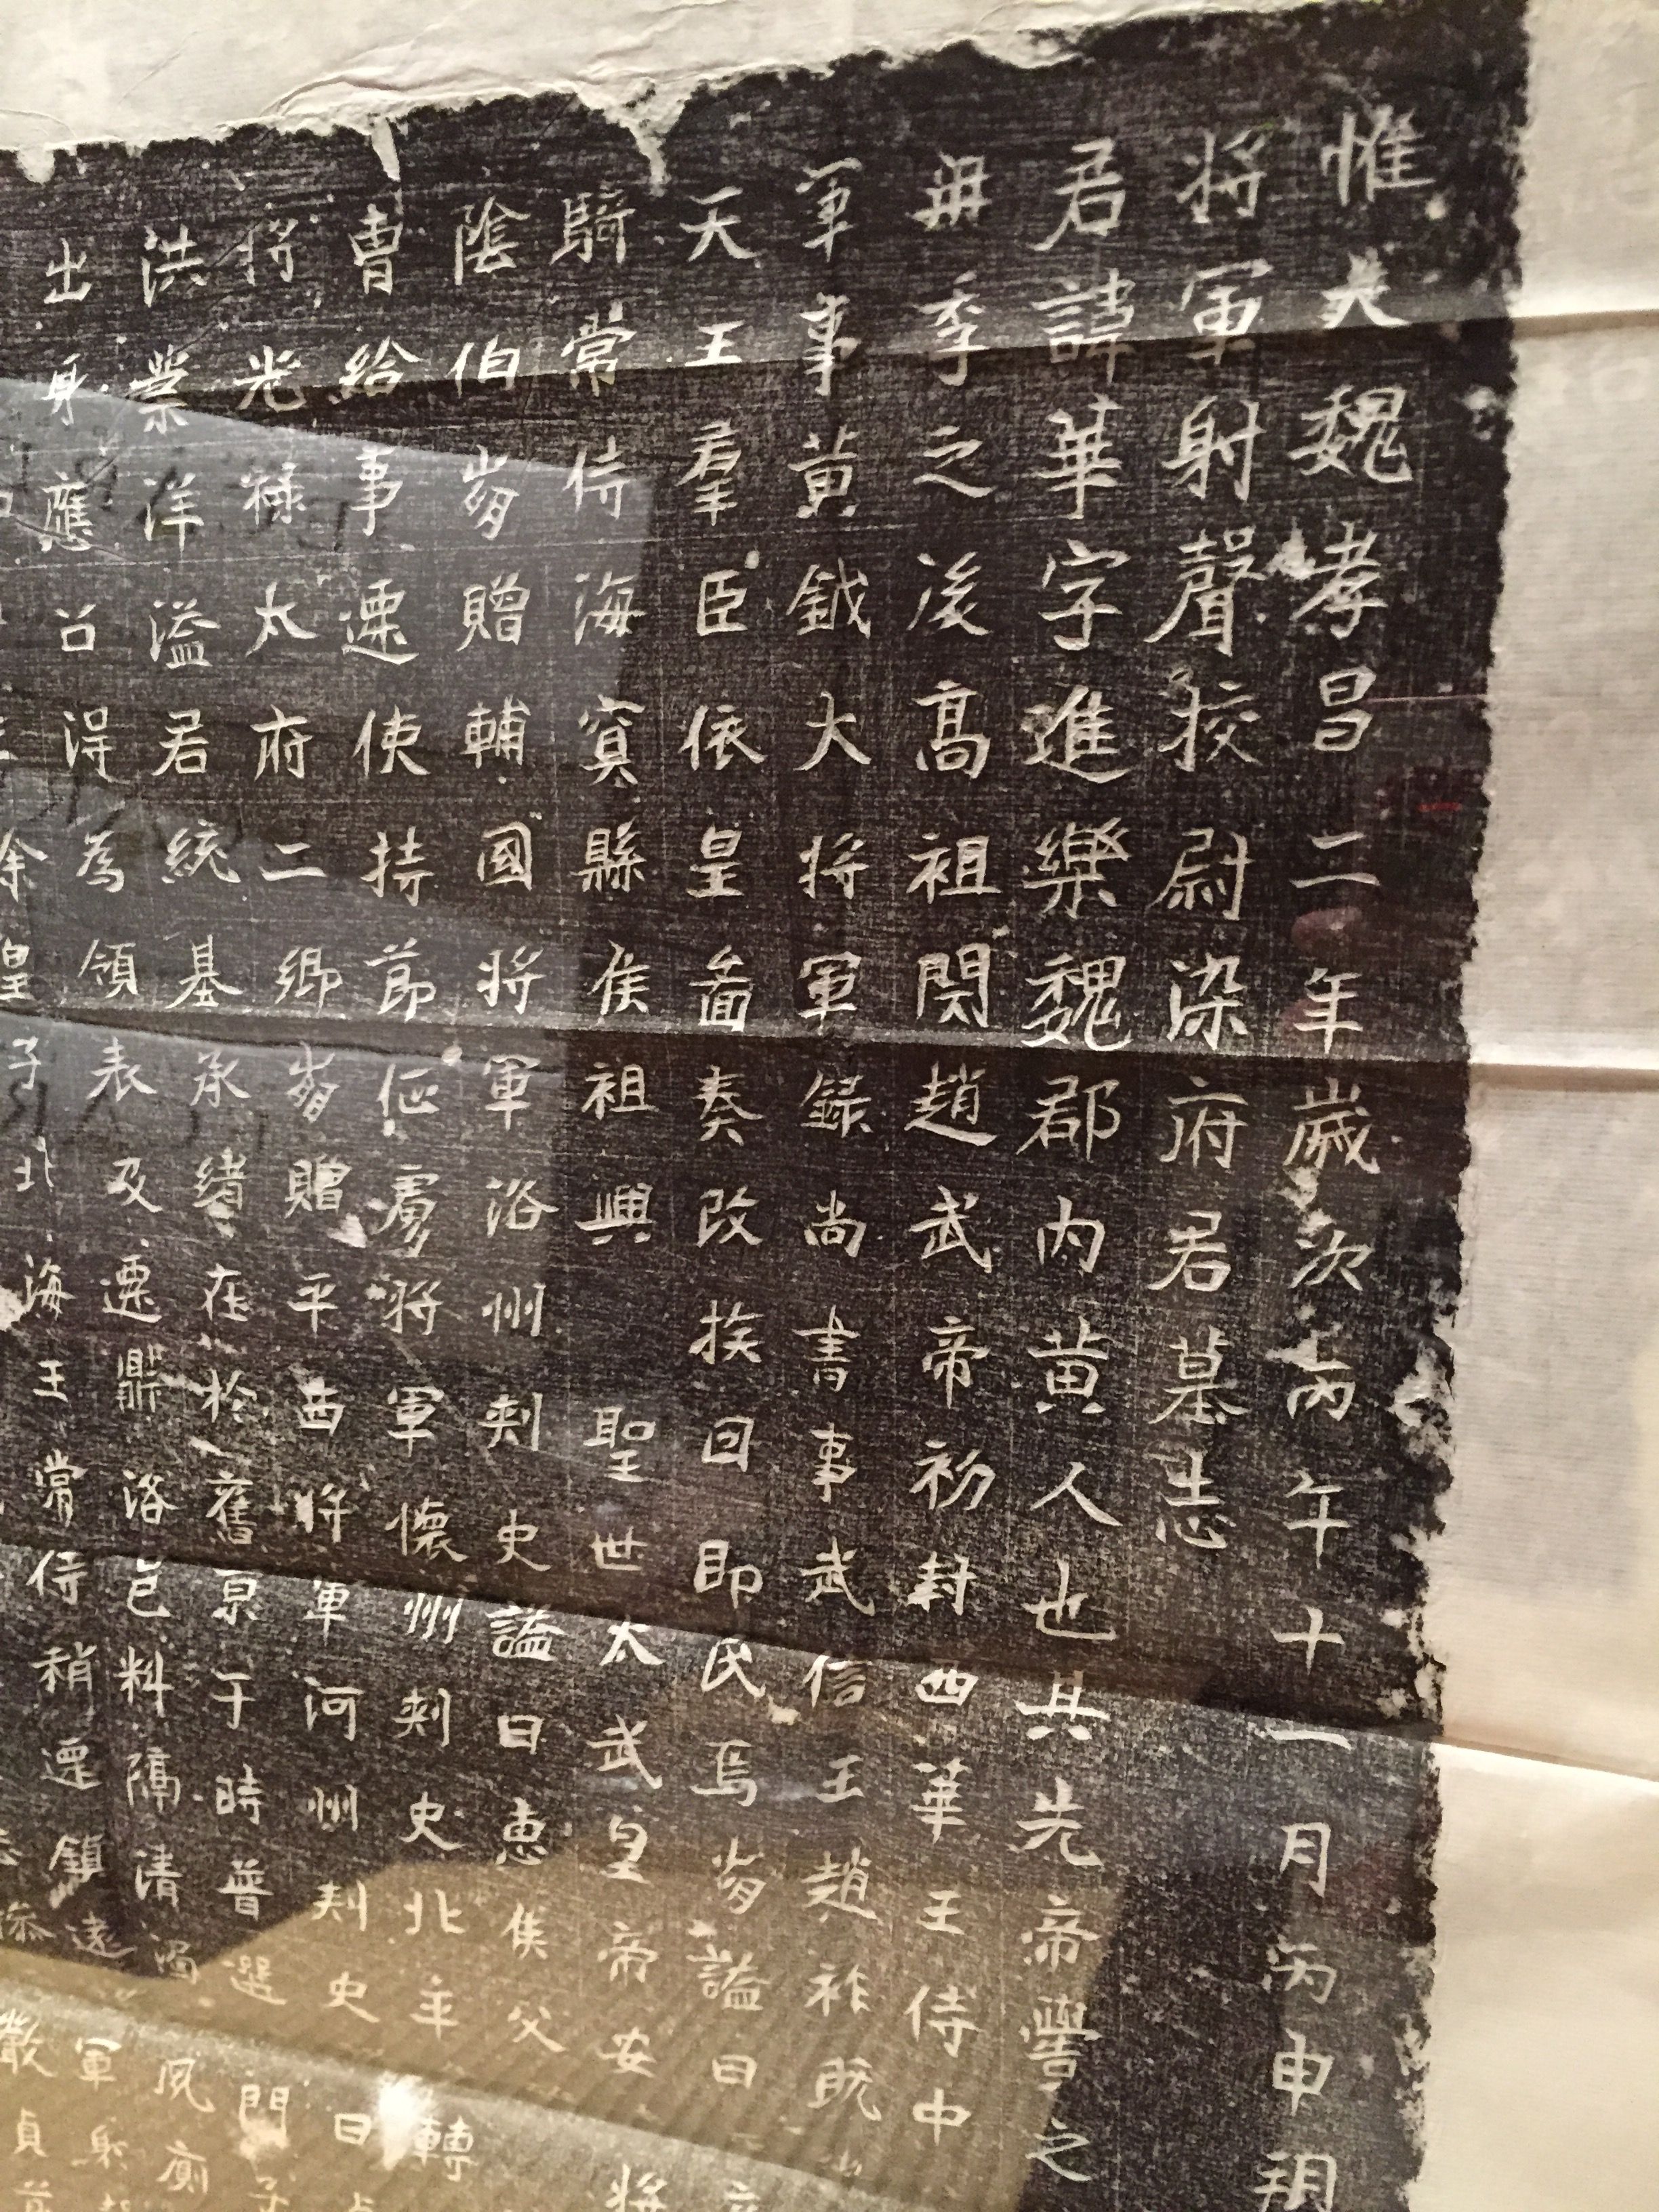 惟大魏孝昌二年歲次丙午十一月丙申朔
將軍射聲挍尉染府君墓志
君諱華字進樂魏郡內黃人也其先帝嚳之
毌季之後高祖閔趙武帝初封西華王侍中
軍事黃鉞大將軍錄尚書事武信王趙祚既
天王羣臣依皇啚奏改族回即民焉謚曰
騎常侍海賓縣侯祖興聖世太武皇帝安將
陰伯贈輔國將軍洛州刺史謚曰惠侯父
曹給事速使持節征虜將軍懷州刺史北平轉
將光祿太府二卿贈平西將軍河州刾史曰
洪業洋溢君統基承緒在於舊京于時普選門子
出身應召淂為領表及遷鼎洛邑料隔清濁夙廁
除皇子北海王常侍稍遷鎮遠軍射